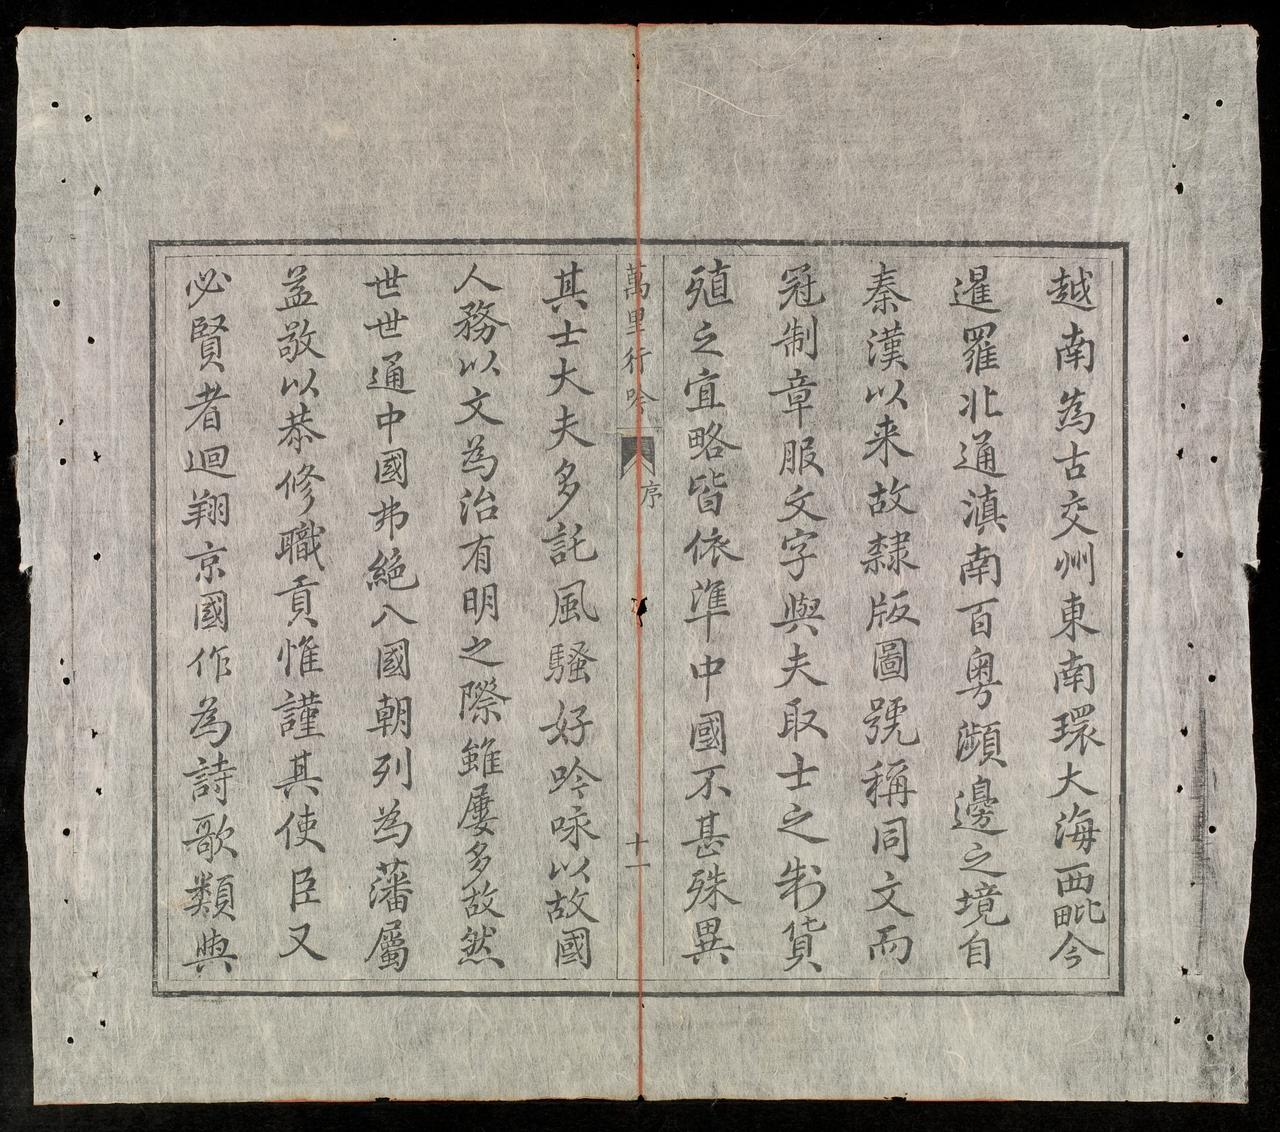 越南為古交州東南環大海西毗今
暹羅北通滇南百粵瀕邊之境自
秦漢以来故隸版圖號稱同文而
冠制章服文字與夫取士之制貨
殖之宜略皆依準中國不甚殊異
萬里行吟
序
十一
其士大夫多託風騷好吟咏以故國
人務以文為治有明之際雖屢多故然
世世通中國弗絕入國朝列為藩屬
益敬以恭修職貢惟謹其使臣又
必賢者迴翔京國作為詩歌類與